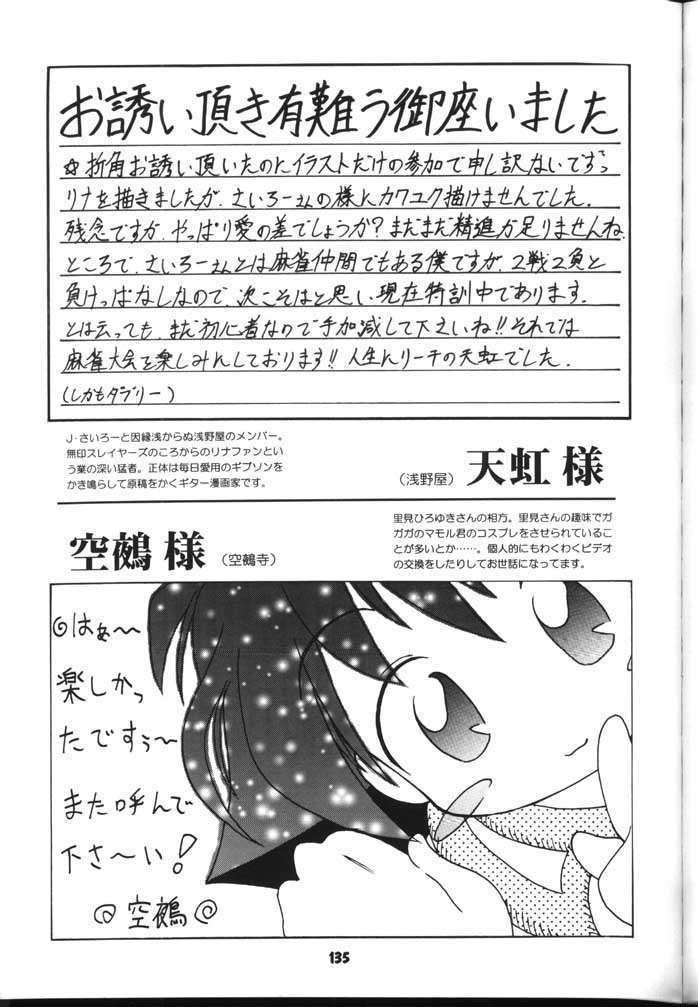 お誘い頂き有難う御座いました
☆折角お誘い頂いたのにイラストだけの参加で申し訳ないですっ
リナを描きましたが、さいろーさんの様にカワユク描けませんでした。
残念ですが、やっぱり愛の差でしょうか?まだまだ精進が足りませんね。
ところで、さいろーさんとは麻雀仲間でもある僕ですが、2戦2負と
負けっぱなしなので、次こそはと思い現在特訓中であります。
とは云っても、まだ初心者なので手加減して下さいね!!それでは
麻雀大会を楽しみにしております!!人生にリーチの天虹でした。
(しかもダブリー)
J・さいろーと因縁浅からぬ浅野屋のメンバー。
無印スレイヤーズのころからのリナファンとい
う業の深い猛者。正体は毎日愛用のギブソンを
かき鳴らして原稿をかくギター漫画家です。
(浅野屋) 天虹 様
空鵺 様 (空鵺寺)
里見ひろゆきさんの相方。里見さんの趣味でガ
ガガのマモル君のコスプレをさせられているこ
とが多いとか……。個人的にもわくわくビデオ
の交換をしたりしてお世話になってます。
はぁ〜
楽しかっ
たですぅ〜
また呼んで
下さ〜い!
空鵺
135